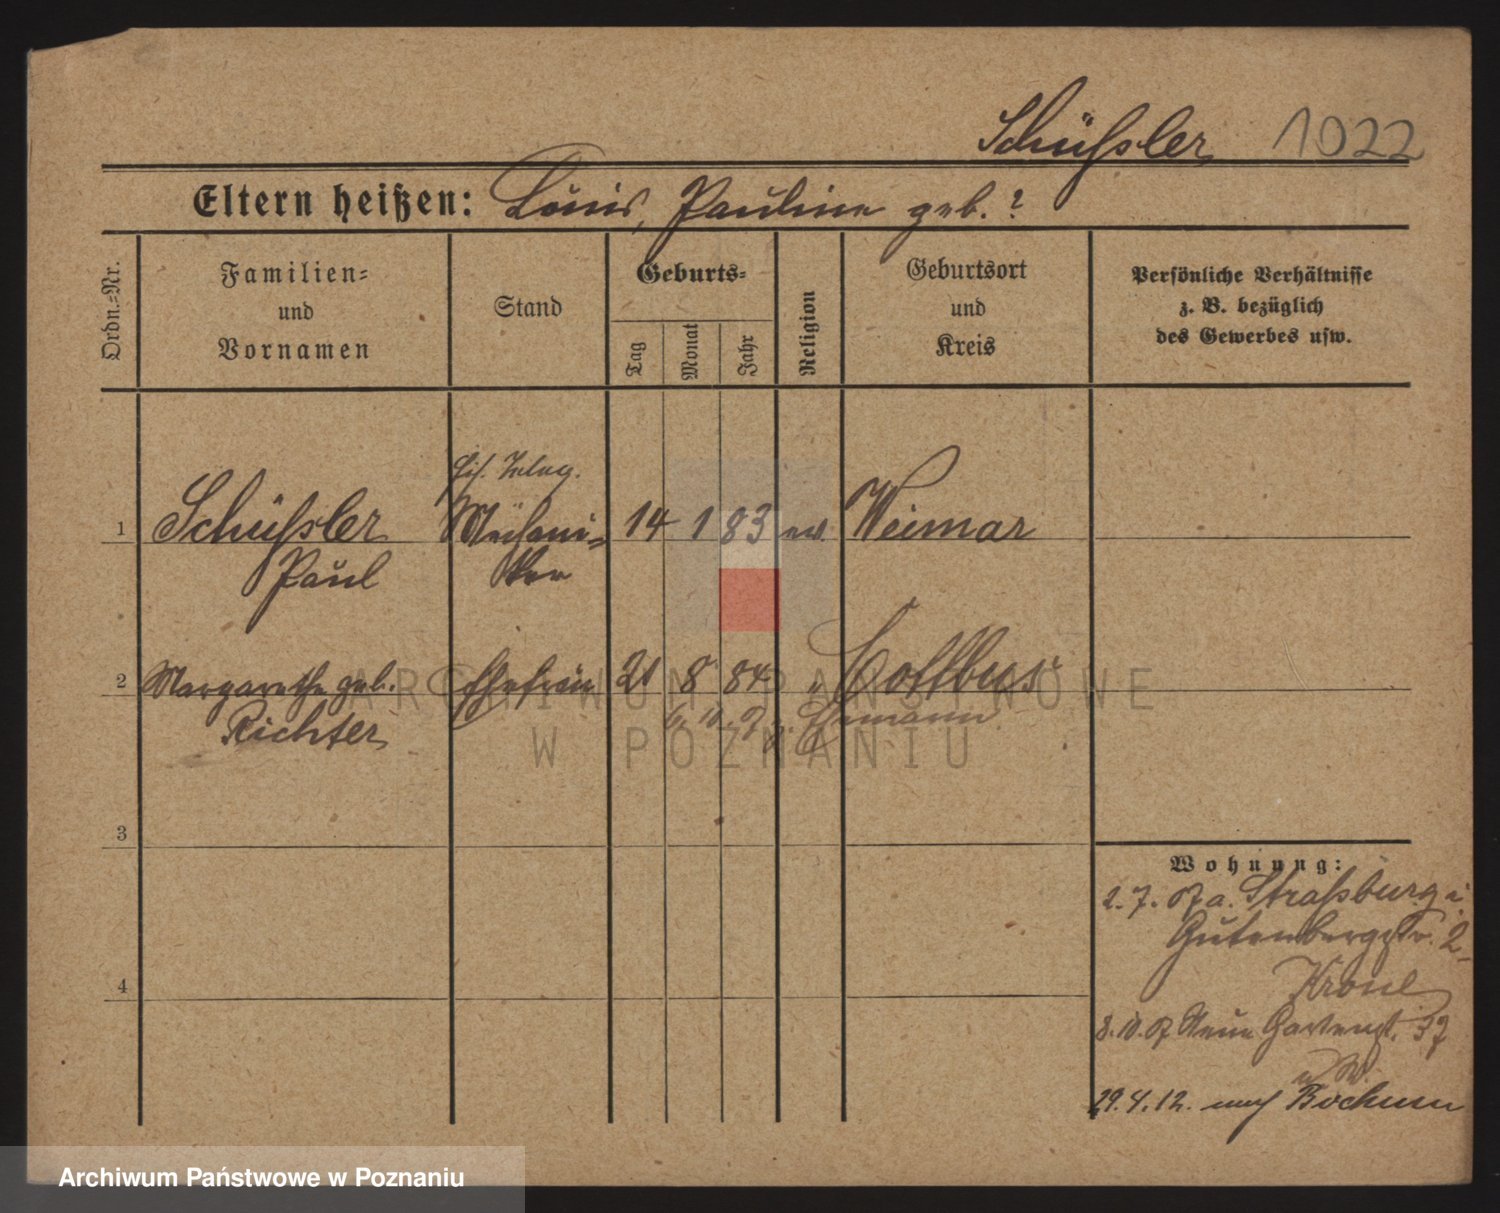 Schüßler 1022
Eltern heißen: Louis, Pauline geb. ?
Ordn.=Nr.
Familien=
und
Vornamen
Stand
Geburts=
Tag
Monat
Jahr
Religion
Geburtsort
und
Kreis
Persönliche Verhältnisse
z. B. bezüglich
des Gewerbes usw.
1 Schüßler Paul
Eis. Teleg. Mechani=ker
14 1 83 ev. Weimar
2 Margarethe geb. Richter
Ehefrau 21 8 84 " Cottbus
Ehemann
3
4
Wohnung:
2. 7. Straßburg i
Gutenbergstr. 2
Krone
8. 10. Neue Gartenst. 37
29.4.12. nach Bochum
ARCHIWUM PAŃSTWOWE
W POZNANIU
Archiwum Państwowe w Poznaniu